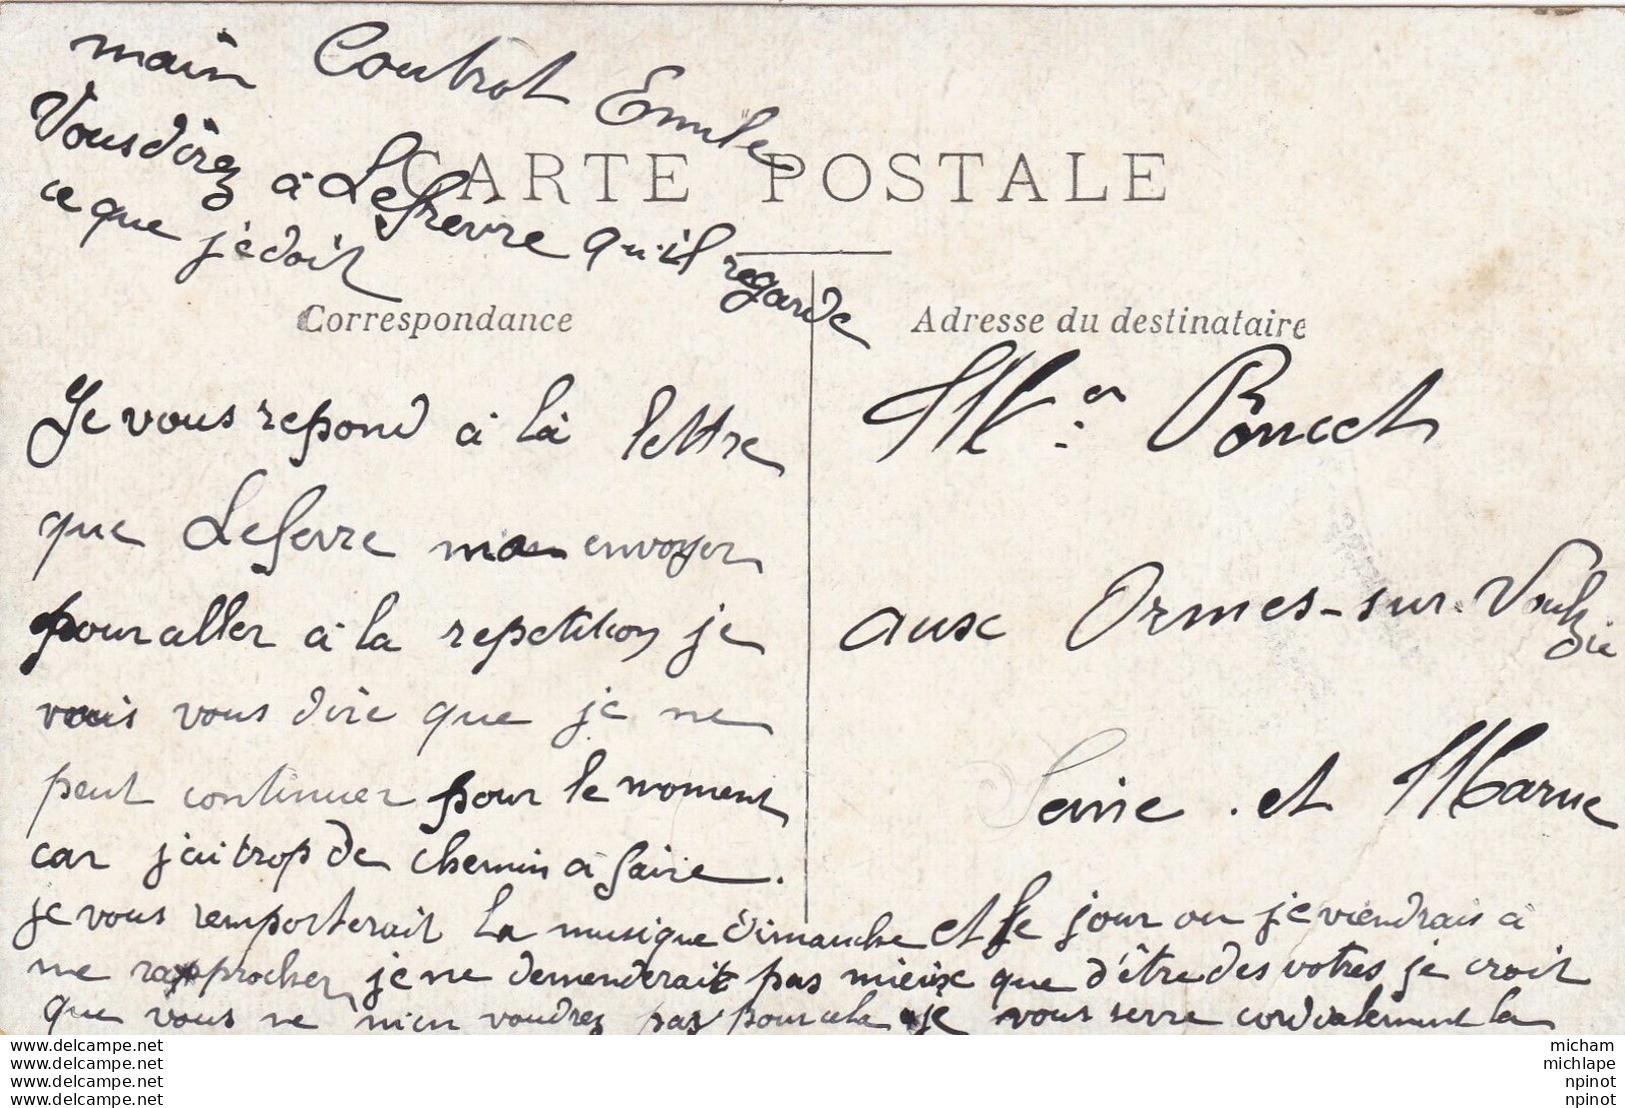 main Coutrot Emile
Vous direz à Lefrevre qu'il regarde
ce que je doit
CARTE POSTALE
Correspondance
Adresse du destinataire
Je vous repond à là lettre
que Lefevre envoyer
pour aller à la repetition je
vais vous dire que je ne
peut continuer pour le moment
car j'ai trop de chemin a faire.
je vous remporterait la musique dimanche et le jour ou je viendrais à
me rapprocher je ne demenderait pas mieux que d'être des votres je croit
que vous ne m'en voudrez pas pour cela je vous serre cordialement la
Mr Poncet
aux Ormes-sur-Voulzie
Seine et Marne
www.delcampe.net
www.delcampe.net
www.delcampe.net
www.delcampe.net
micham
michlape
npinot
npinot